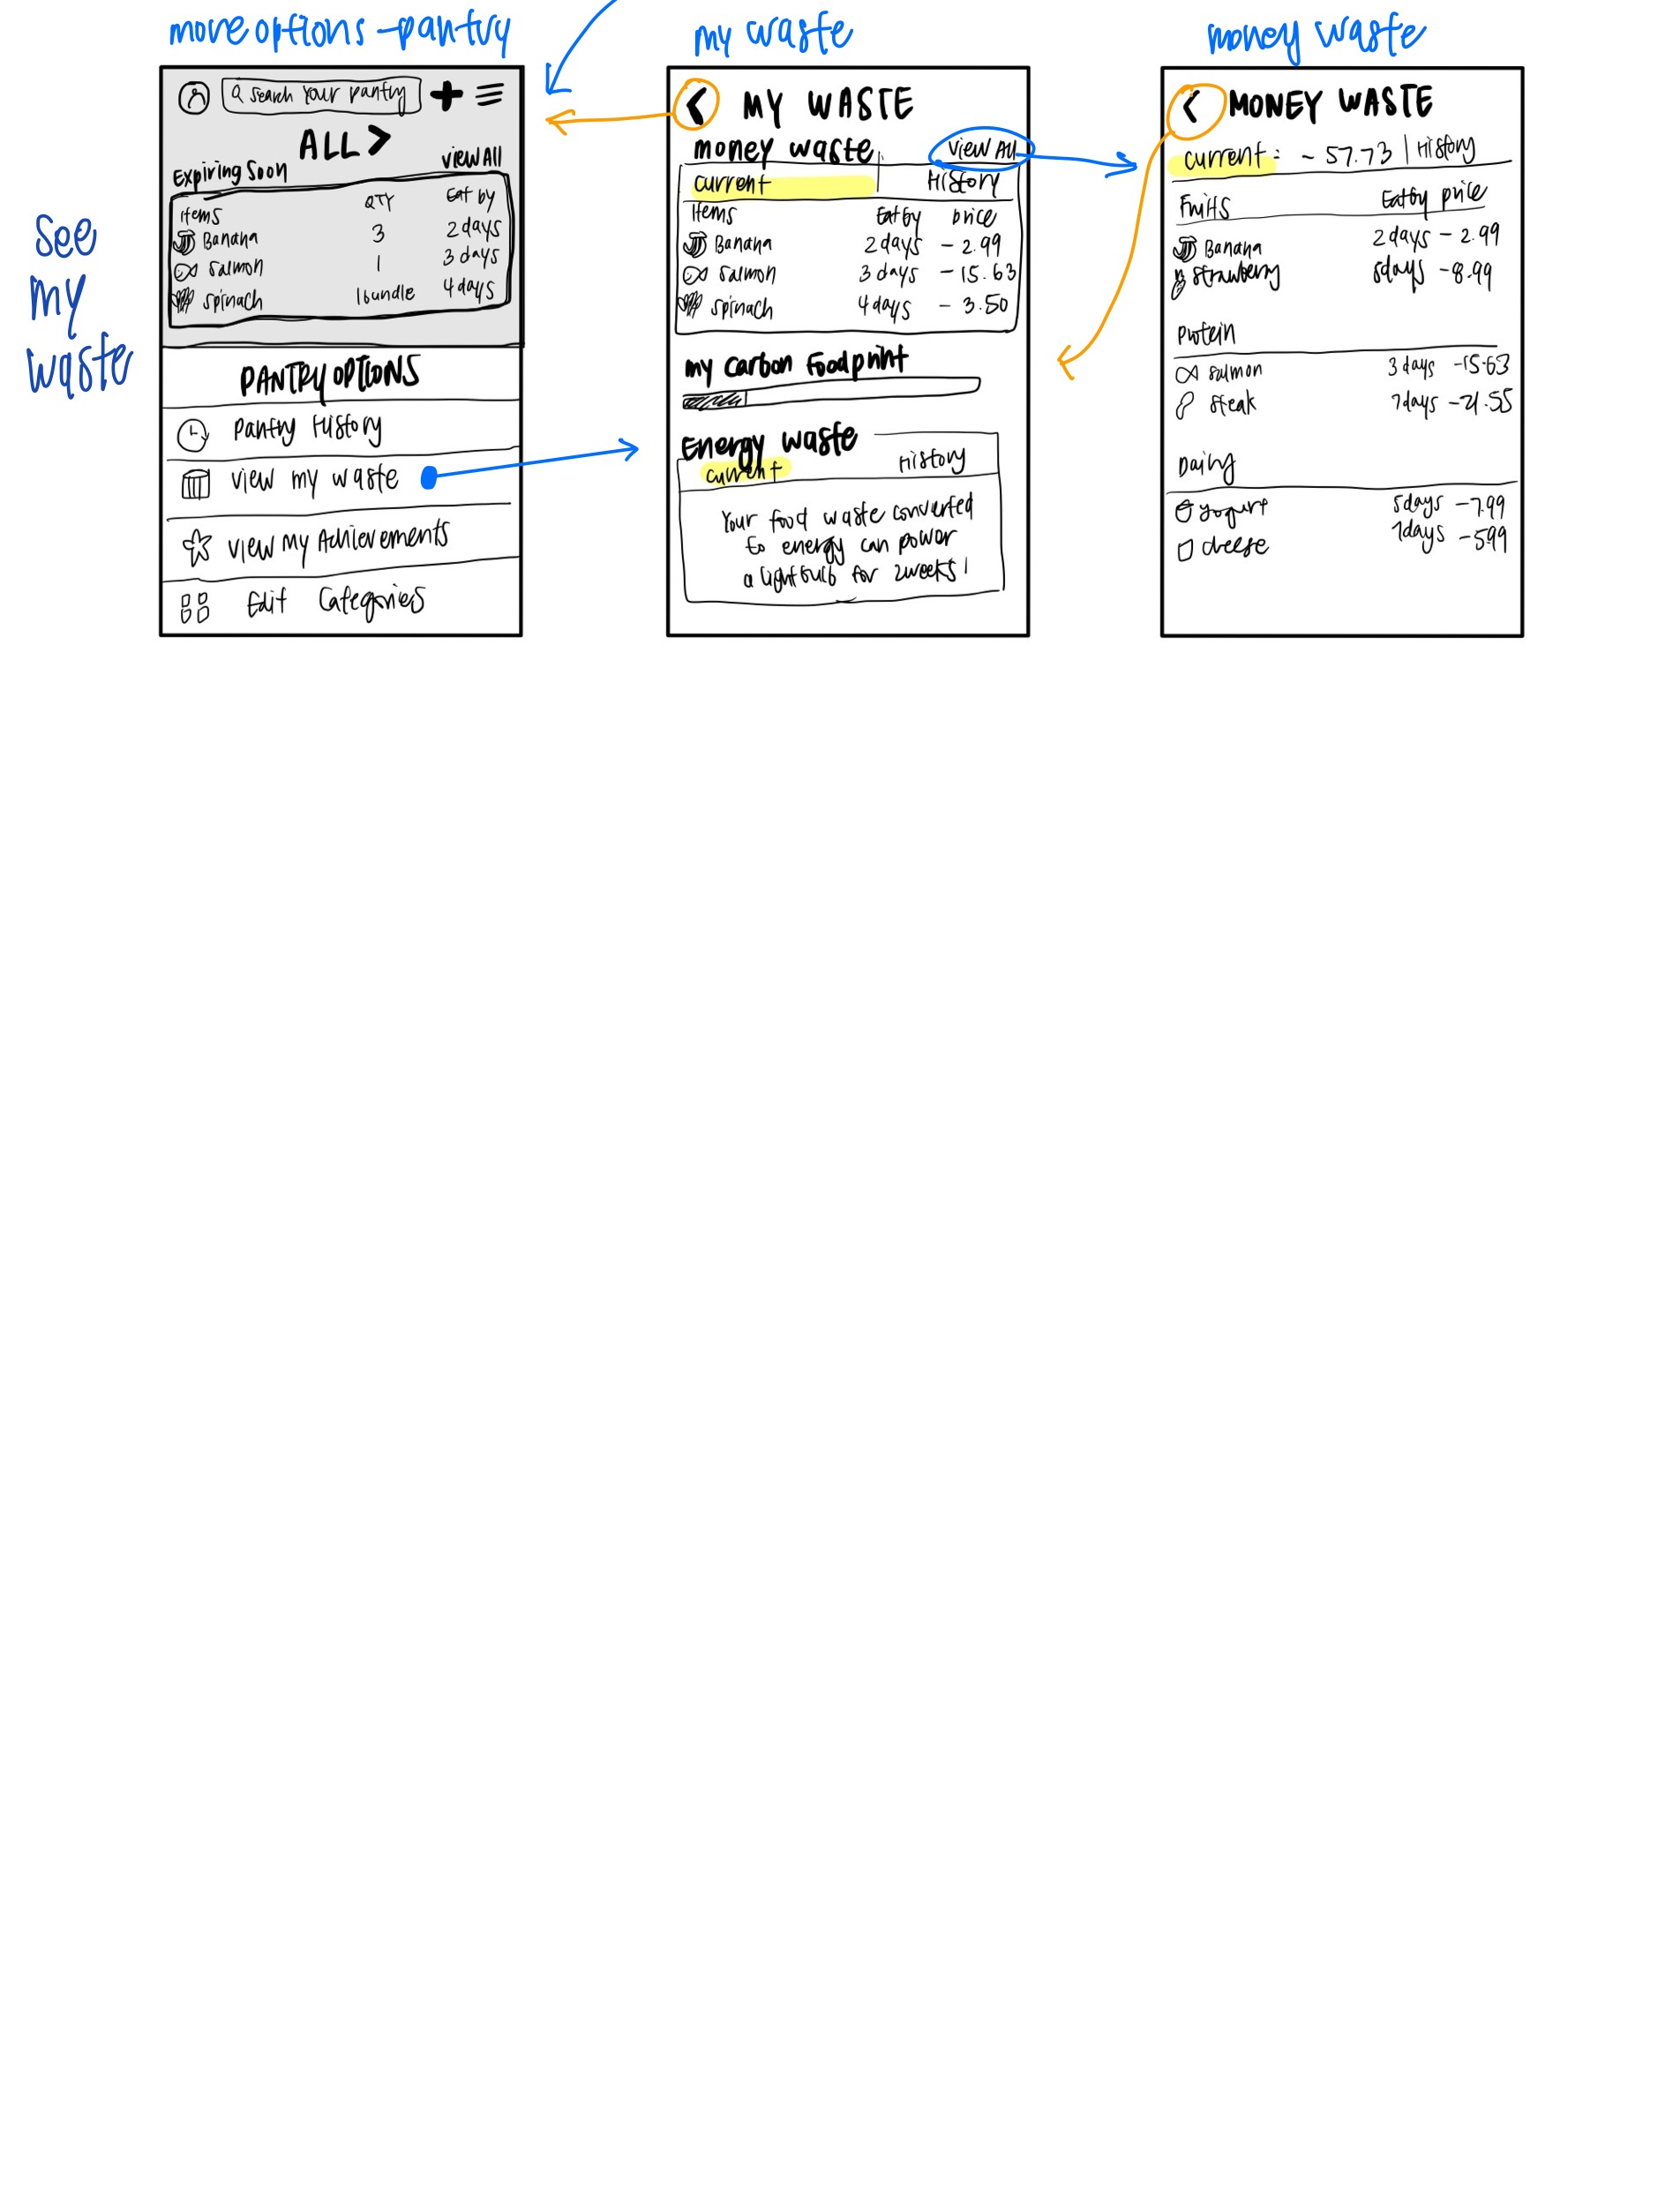 see
my
waste
more options - pantry
search Your pantry
ALL >
Expiring Soon
view All
Items QTY Eat by
Banana 3 2 days
Salmon 1 3 days
Spinach 1 bundle 4 days
PANTRY OPTIONS
Pantry History
view my waste
view my Achievements
Edit Categories
my waste
< MY WASTE
money waste
view All
current History
Items Eat by price
Banana 2 days - 2.99
Salmon 3 days - 15.63
Spinach 4 days - 3.50
my carbon foodprint
Energy waste
current History
Your food waste converted
to energy can power
a lightbulb for 2 weeks!
money waste
< MONEY WASTE
current: - 57.73 | History
Fruits Eat by price
Banana 2 days - 2.99
Strawberry 5 days - 8.99
Protein
Salmon 3 days - 15.63
Steak 7 days - 21.55
Dairy
yogurt 5 days - 7.99
cheese 7 days - 5.99